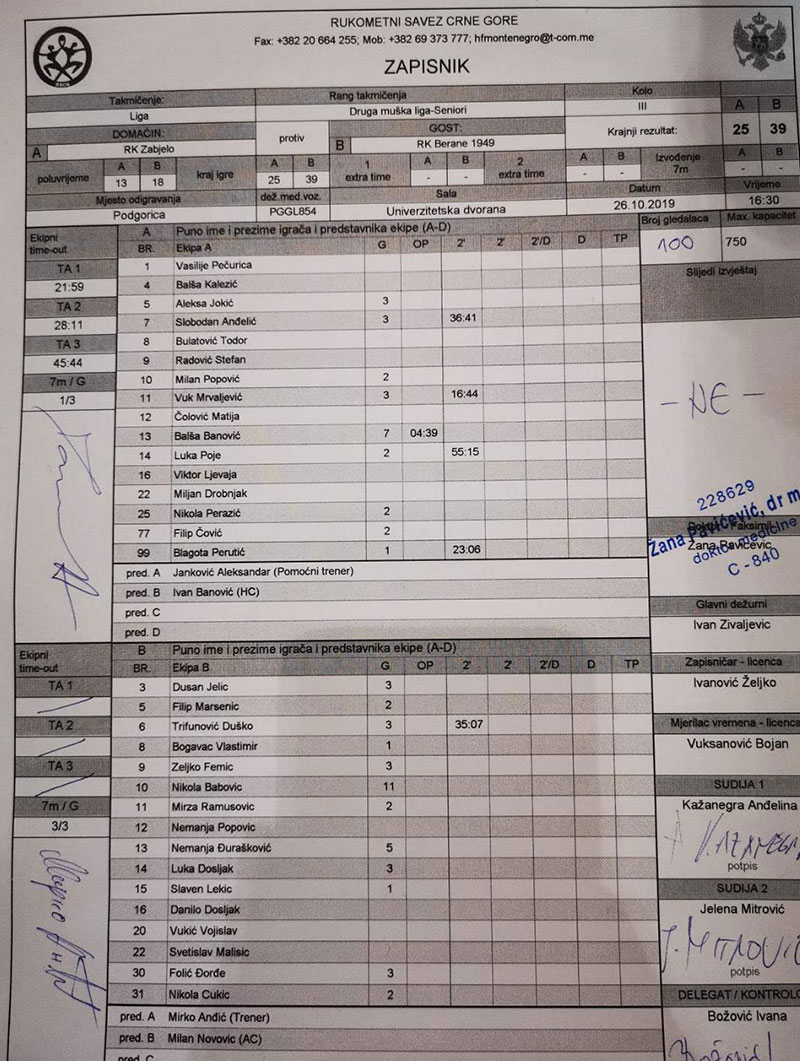 RUKOMETNI SAVEZ CRNE GORE
Fax: +382 20 664 255; Mob: +382 69 373 777; hfmontenegro@t-com.me
ZAPISNIK
Takmičenje: Rang takmičenja Kolo A B
Liga Druga muška liga-Seniori III
DOMAĆIN: protiv GOST: Krajnji rezultat: 25 39
A RK Zabjelo B RK Berane 1949
poluvrijeme A B kraj igre A B 1 extra time A B 2 extra time A B Izvođenje 7m A B
13 18 25 39 - - - - - -
Mjesto odigravanja dež.med.voz. Sala Datum Vrijeme
Podgorica PGGL854 Univerzitetska dvorana 26.10.2019 16:30
Ekipni time-out A Puno ime i prezime igrača i predstavnika ekipe (A-D) Broj gledalaca Max. kapacitet
BR. Ekipa A G OP 2' 2' 2'/D D TP 100 750
TA 1 1 Vasilije Pečurica Slijedi izvještaj
21:59 4 Balša Kalezić
TA 2 5 Aleksa Jokić 3
28:11 7 Slobodan Anđelić 3 36:41
TA 3 8 Bulatović Todor
45:44 9 Radović Stefan
7m / G 10 Milan Popović 2
1/3 11 Vuk Mrvaljević 3 16:44 - NE -
12 Čolović Matija
13 Balša Banović 7 04:39
14 Luka Poje 2 55:15
16 Viktor Ljevaja
22 Miljan Drobnjak 228629
25 Nikola Perazić 2 Žana Pavićević, dr m
77 Filip Čović 2 Žana Pavićević
99 Blagota Perutić 1 23:06 C - 840
pred. A Janković Aleksandar (Pomoćni trener)
pred. B Ivan Banović (HC) Glavni dežurni
pred. C Ivan Zivaljevic
pred. D
Ekipni time-out B Puno ime i prezime igrača i predstavnika ekipe (A-D) Zapisničar - licenca
BR. Ekipa B G OP 2' 2' 2'/D D TP
TA 1 3 Dusan Jelic 3 Ivanović Željko
5 Filip Marsenic 2
TA 2 6 Trifunović Duško 3 35:07 Mjerilac vremena - licenca
8 Bogavac Vlastimir 1 Vuksanović Bojan
TA 3 9 Zeljko Femic 3
10 Nikola Babovic 11 SUDIJA 1
7m / G 11 Mirza Ramusovic 2 Kažanegra Anđelina
3/3 12 Nemanja Popovic
13 Nemanja Đurašković 5
14 Luka Dosljak 3 potpis
15 Slaven Lekic 1 SUDIJA 2
16 Danilo Dosljak Jelena Mitrović
20 Vukić Vojislav
22 Svetislav Malisic J. MITROVIĆ
30 Folić Đorđe 3 potpis
31 Nikola Cukic 2 DELEGAT / KONTROLO
pred. A Mirko Anđić (Trener) Božović Ivana
pred. B Milan Novovic (AC)
pred. C